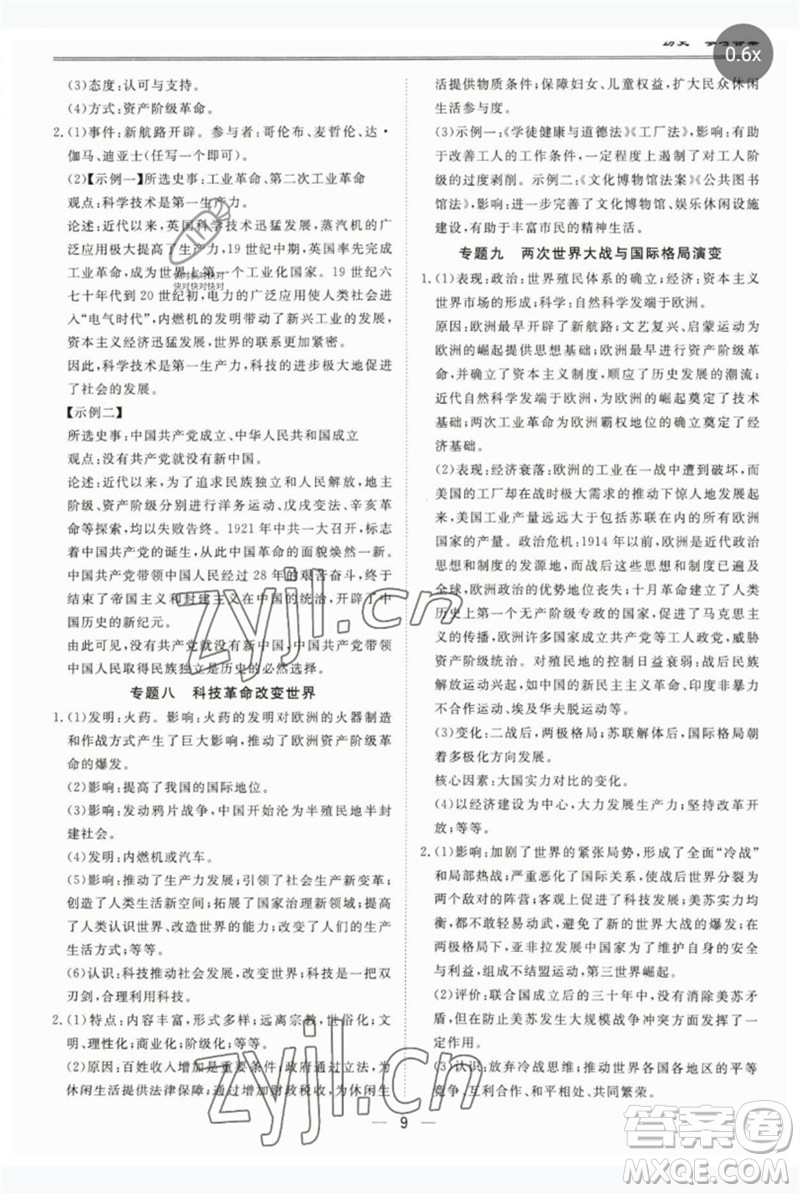 0.6x
(3)态度:认可与支持。
(4)方式:资产阶级革命。
2.(1)事件:新航路开辟。参与者:哥伦布、麦哲伦、达·
伽马、迪亚士(任写一个即可)。
(2)【示例一】所选史事:工业革命、第二次工业革命
观点:科学技术是第一生产力。
论述:近代以来,英国科学技术迅猛发展,蒸汽机的广
泛应用极大提高了生产力,19世纪中期,英国率先完成
工业革命,成为世界上第一个工业化国家。19世纪六
七十年代到20世纪初,电力的广泛应用使人类社会进
入“电气时代”,内燃机的发明带动了新兴工业的发展,
资本主义经济迅猛发展,世界的联系更加紧密。
因此,科学技术是第一生产力,科技的进步极大地促进
了社会的发展。
【示例二】
所选史事:中国共产党成立、中华人民共和国成立
观点:没有共产党就没有新中国。
论述:近代以来,为了追求民族独立和人民解放,地主
阶级、资产阶级分别进行洋务运动、戊戌变法、辛亥革
命等探索,但都失败告终。1921年中共一大召开,标志
着中国共产党的诞生,从此中国革命的面貌焕然一新。
中国共产党带领中国人民经过28年的艰苦奋斗,终于
结束了帝国主义和封建主义在中国的统治,开辟了中
国历史的新纪元。
由此可见,没有共产党就没有新中国,中国共产党带领
中国人民取得民族独立是历史的必然选择。
专题八 科技革命改变世界
1.(1)发明:火药。影响:火药的发明对欧洲的火器制造
和作战方式产生了巨大影响,推动了欧洲资产阶级革
命的爆发。
(2)影响:提高了我国的国际地位。
(3)影响:发动鸦片战争,中国开始沦为半殖民地半封
建社会。
(4)发明:内燃机或汽车。
(5)影响:推动了生产力发展;引领了社会关系变革;
创造了人类生活新空间;拓展了国家治理新领域;提高
了人类认识世界、改造世界的能力;改变了人们的生产
生活方式;等等。
(6)认识:科技推动社会发展,改变世界;科技是一把双
刃剑,合理利用科技。
2.(1)特点:内容丰富,形式多样;远离宗教,世俗化;文
明、理性化;商业化;阶级分化;等等。
(2)原因:百姓收入增加是重要条件;政府通过立法,为
休闲生活提供法律保障;通过增加财政税收,为休闲生
活提供物质条件;保障妇女、儿童权益,扩大民众休闲
生活参与度。
(3)示例一:《学徒健康与道德法》《工厂法》,影响:有助
于改善工人的工作条件,一定程度上遏制了对工人阶
级的过度剥削。示例二:《文化博物馆法案》《公共图书
馆法》,影响:进一步完善了文化博物馆、娱乐休闲公共
设施建设,有助于丰富市民的精神生活。
专题九 两次世界大战与国际格局演变
1.(1)表现:政治:世界殖民体系的确立;经济:资本主义
世界市场的形成;科学:自然科学发端于欧洲。
原因:欧洲最早开辟了新航路;文艺复兴、启蒙运动为
欧洲的崛起提供思想基础;欧洲最早进行资产阶级革
命,建立资本主义制度,顺应了历史发展的潮流;
近代自然科学首先发端于欧洲,为其崛起奠定了技术
基础;两次工业革命为欧洲霸权地位的确立奠定了经
济基础。
(2)表现:经济衰落:欧洲的工业在一战中遭到破坏,而
美国的工厂却在战时极大需求的推动下惊人地发展
起来,美国工业产量远远大于包括苏联在内的整个欧洲
国家的产量。政治危机:1914年以前,欧洲已控制了
全球,欧洲政治的优势地位丧失;十月革命建立了人类
历史上第一个无产阶级专政的国家,促进了马克思主义
的传播,欧洲许多国家成立共产党等工人政党,威胁
资产阶级统治。对殖民地的控制日益衰弱:亚非民族
民主运动高涨,严重动摇了帝国主义统治,如印度非暴
力不合作运动、埃及华夫脱运动。
(3)变化:二战后,两极格局形成;苏联解体后,国际格局
朝着多极化方向发展。
核心因素:大国实力对比的变化。
(4)以经济建设为中心,大力发展生产力;坚持改革开
放;等等。
2.(1)影响:加剧了世界的紧张局势,形成了全面“冷战”
和局部热战;严重恶化了国际关系,导致世界分裂为
两个敌对的阵营;客观上促进了科技发展;美苏实力均
衡,双方不轻易动武,避免了新的世界大战的爆发;在
两极格局下,亚非拉发展中国家为了维护自身安全
与利益,组织不结盟运动,第三世界崛起。
(2)评价:联合国成立的三十年中,没有消除美苏矛
盾,但为防止美苏发生大规模战争冲突方面发挥了一
定作用。
(3)认识:放弃冷战思维;推动世界各国各地区的平等
竞争、互利合作、共同繁荣。
9
快对快对快对
快对快对快对
zyjl.cn
zyjl.cn
答案圈
MXQE.COM